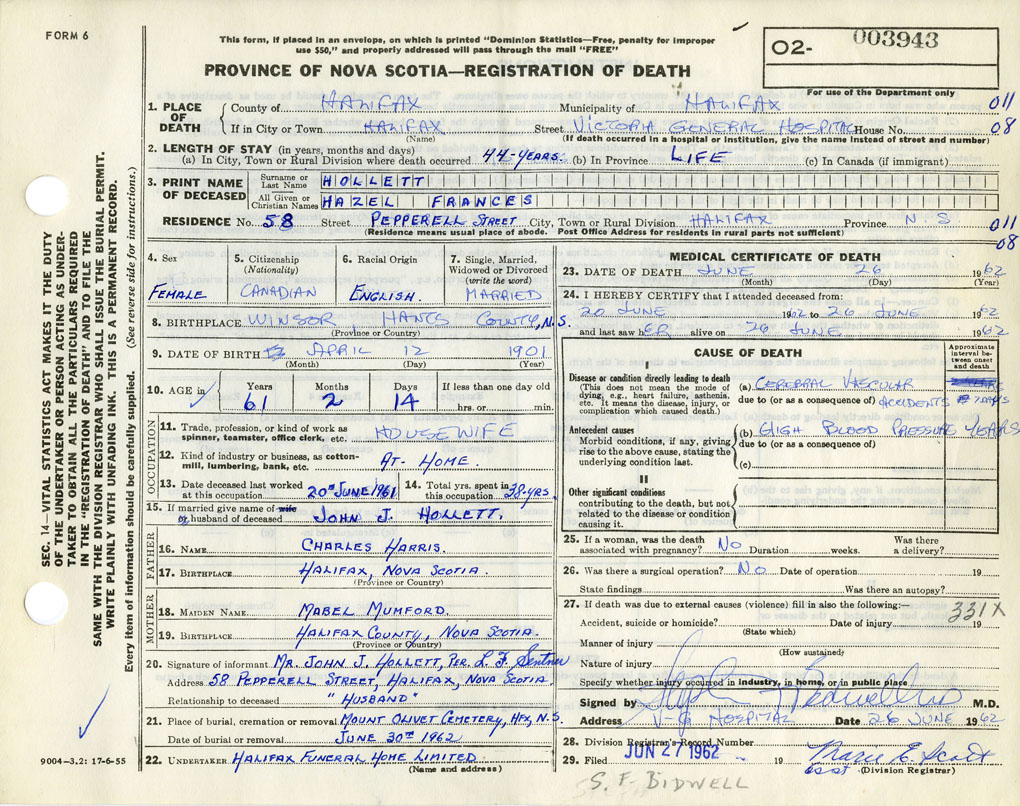 FORM 6
This form, if placed in an envelope, on which is printed "Dominion Statistics—Free, penalty for improper
use $50," and properly addressed will pass through the mail "FREE"
02- 003943
For use of the Department only
PROVINCE OF NOVA SCOTIA—REGISTRATION OF DEATH
1. PLACE OF DEATH County of HALIFAX Municipality of HALIFAX 011
If in City or Town HALIFAX Street VICTORIA GENERAL HOSPITAL House No. 08
(Name) (If death occurred in a hospital or institution, give the name instead of street and number)
2. LENGTH OF STAY (in years, months and days)
(a) In City, Town or Rural Division where death occurred 44-YEARS. (b) In Province LIFE (c) In Canada (if immigrant)
3. PRINT NAME OF DECEASED Surname or Last Name HOLLETT
All Given or Christian Names HAZEL FRANCES
RESIDENCE No. 58 Street PEPPERELL STREET City, Town or Rural Division HALIFAX Province N.S 011
(Residence means usual place of abode. Post Office Address for residents in rural parts not sufficient) 08
SEC. 14—VITAL STATISTICS ACT MAKES IT THE DUTY
OF THE UNDERTAKER OR PERSON ACTING AS UNDER-
TAKER TO OBTAIN ALL THE PARTICULARS REQUIRED
IN THE "REGISTRATION OF DEATH" AND TO FILE THE
SAME WITH THE DIVISION REGISTRAR WHO SHALL ISSUE THE BURIAL PERMIT.
WRITE PLAINLY WITH UNFADING INK. THIS IS A PERMANENT RECORD.
Every item of information should be carefully supplied. (See reverse side for instructions.)
4. Sex FEMALE
5. Citizenship (Nationality) CANADIAN
6. Racial Origin ENGLISH.
7. Single, Married, Widowed or Divorced (write the word) MARRIED
8. BIRTHPLACE WINSOR, HANTS COUNTY, N.S.
(Province or Country)
9. DATE OF BIRTH APRIL 12 1901
(Month) (Day) (Year)
10. AGE in Years 61 Months 2 Days 14 If less than one day old hrs. or min.
OCCUPATION
11. Trade, profession, or kind of work as spinner, teamster, office clerk, etc. HOUSEWIFE
12. Kind of industry or business, as cotton-mill, lumbering, bank, etc. AT- HOME.
13. Date deceased last worked at this occupation 20TH JUNE 1961 14. Total yrs. spent in this occupation 38-YRS.
15. If married give name of wife or husband of deceased JOHN J. HOLLETT.
FATHER
16. NAME CHARLES HARRIS.
17. BIRTHPLACE HALIFAX, NOVA SCOTIA.
(Province or Country)
MOTHER
18. MAIDEN NAME MABEL MUMFORD.
19. BIRTHPLACE HALIFAX COUNTY, NOVA SCOTIA.
(Province or Country)
20. Signature of informant MR. JOHN J. HOLLETT, PER. L. F. Sentner
Address 58 PEPPERELL STREET, HALIFAX, NOVA SCOTIA.
Relationship to deceased "HUSBAND"
21. Place of burial, cremation or removal MOUNT OLIVET CEMETERY, HFX, N.S.
Date of burial or removal JUNE 30TH 1962
22. UNDERTAKER HALIFAX FUNERAL HOME LIMITED
(Name and address)
9004—3.2: 17-6-55
MEDICAL CERTIFICATE OF DEATH
23. DATE OF DEATH JUNE 26 1962
(Month) (Day) (Year)
24. I HEREBY CERTIFY that I attended deceased from:
20 JUNE 1962 to 26 JUNE 1962
and last saw hER alive on 26 JUNE 1962
CAUSE OF DEATH
Approximate interval between onset and death
I
Disease or condition directly leading to death
(This does not mean the mode of dying, e.g., heart failure, asthenia, etc. It means the disease, injury, or complication which caused death.)
(a) CEREBRAL VASCULAR
due to (or as a consequence of) ACCIDENTS 7 DAYS
Antecedent causes
Morbid conditions, if any, giving rise to the above cause, stating the underlying condition last.
(b) HIGH BLOOD PRESSURE YEARS
due to (or as a consequence of)
(c)
II
Other significant conditions
contributing to the death, but not related to the disease or condition causing it.
25. If a woman, was the death associated with pregnancy? NO Duration weeks. Was there a delivery?
26. Was there a surgical operation? NO Date of operation 19
State findings Was there an autopsy?
27. If death was due to external causes (violence) fill in also the following:— 331X
Accident, suicide or homicide? Date of injury 19
(State which)
Manner of injury
(How sustained)
Nature of injury
Specify whether injury occurred in industry, in home, or in public place
Signed by Bidwell M.D.
Address V-G HOSPITAL Date 26 JUNE 1962
28. Division Registrar's Record Number
29. Filed JUN 27 1962 19 Marie E. Scott
(Division Registrar)
S. F. BIDWELL